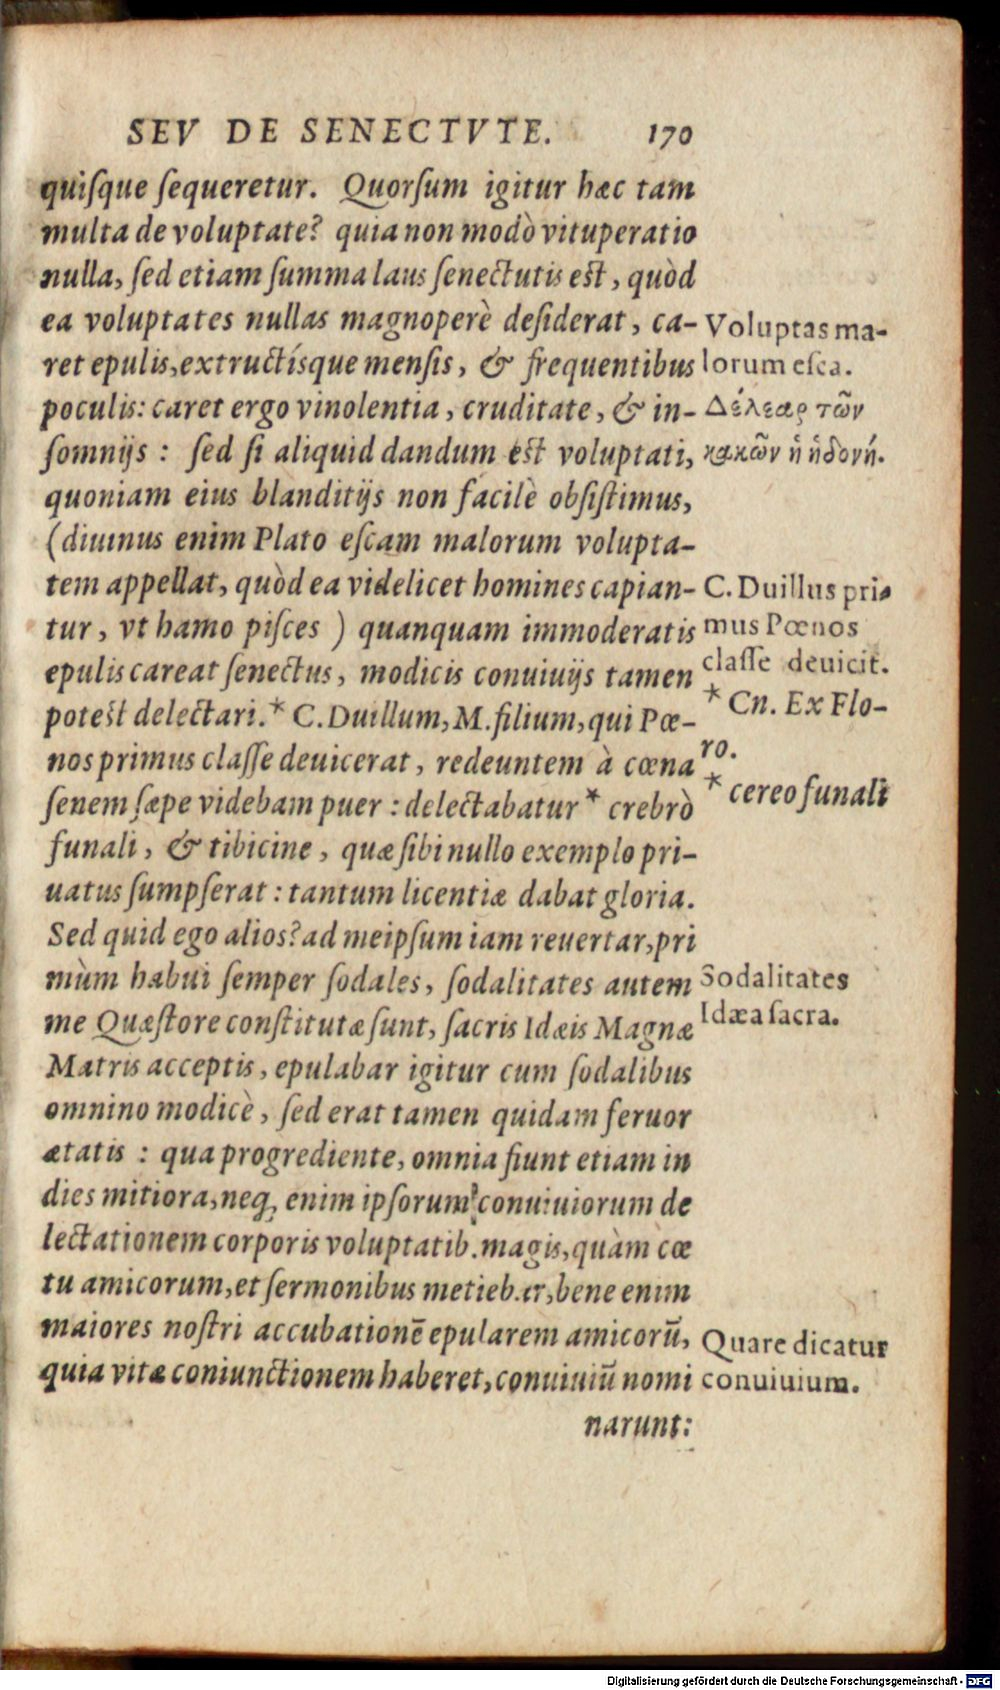 SEV DE SENECTVTE. 170
quiſque ſequeretur. Quorſum igitur hæc tam
multa de voluptate? quia non modò vituperatio
nulla, ſed etiam ſumma laus ſenectutis est, quòd
ea voluptates nullas magnoperè deſiderat, ca-
ret epulis, extructíſque menſis, & frequentibus
poculis: caret ergo vinolentia, cruditate, & in-
ſomnijs : ſed ſi aliquid dandum est voluptati,
quoniam eius blanditijs non facilè obſiſtimus,
(diuinus enim Plato eſcam malorum volupta-
tem appellat, quòd ea videlicet homines capian-
tur, vt hamo piſces ) quanquam immoderatis
epulis careat ſenectus, modicis conuiuijs tamen
potest delectari.* C. Duillum, M. filium, qui Pœ-
nos primus claſſe deuicerat, redeuntem à cœna
ſenem ſæpe videbam puer : delectabatur * crebrò
funali, & tibicine, quæ ſibi nullo exemplo pri-
uatus ſumpſerat : tantum licentiæ dabat gloria.
Sed quid ego alios? ad meipſum iam reuertar, pri
mùm habui ſemper ſodales, ſodalitates autem
me Quæſtore conſtitutæ ſunt, ſacris Idæis Magnæ
Matris acceptis, epulabar igitur cum ſodalibus
omnino modicè, ſed erat tamen quidam feruor
ætatis : qua progrediente, omnia fiunt etiam in
dies mitiora, neq; enim ipſorum conuiuiorum de
lectationem corporis voluptatib. magis, quàm cœ
tu amicorum, et ſermonibus metiebar, bene enim
maiores noſtri accubationē epularem amicorū,
quia vitæ coniunctionem haberet, conuiuiū nomi
narunt:
Voluptas ma-
lorum eſca.
Δέλεαρ τῶν
κακῶν ἡ ἡδονή.
C. Duillus pri-
mus Pœnos
claſſe deuicit.
* Cn. Ex Flo-
ro.
* cereo funali
Sodalitates
Idæa ſacra.
Quare dicatur
conuiuium.
Digitalisierung gefördert durch die Deutsche Forschungsgemeinschaft - DFG